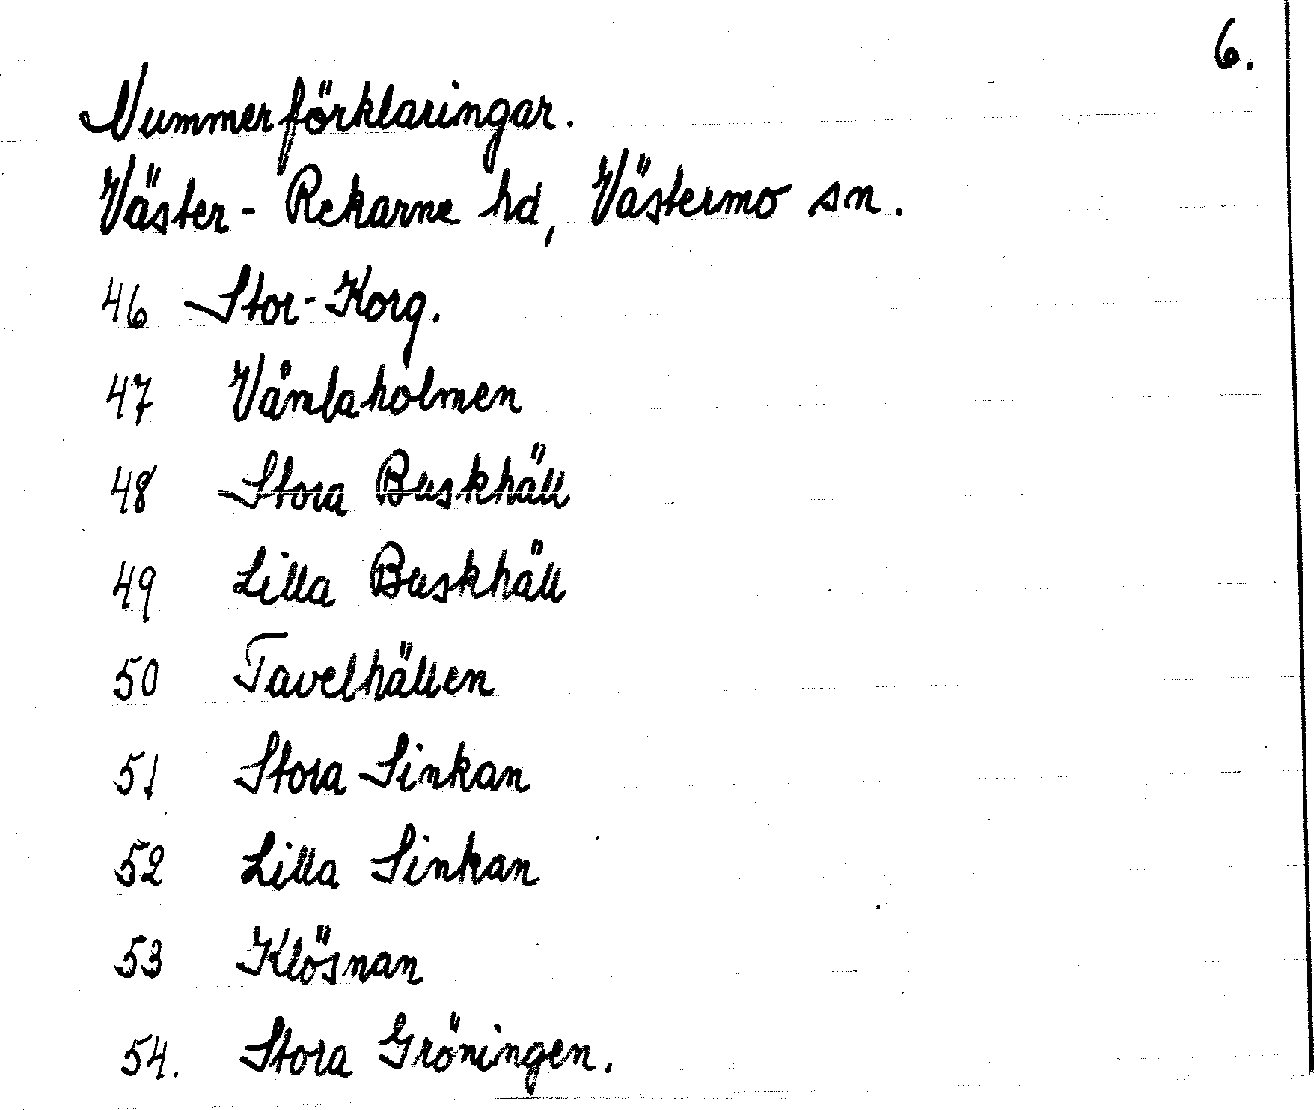 6.
Nummerförklaringar.
Väster-Rekarne hd, Västermo sn.
46 Stor-Korg.
47 Vånlaholmen
48 Stora Buskhäll
49 Lilla Buskhäll
50 Tavelhällen
51 Stora Sinkan
52 Lilla Sinkan
53 Klösnan
54. Stora Gröningen.